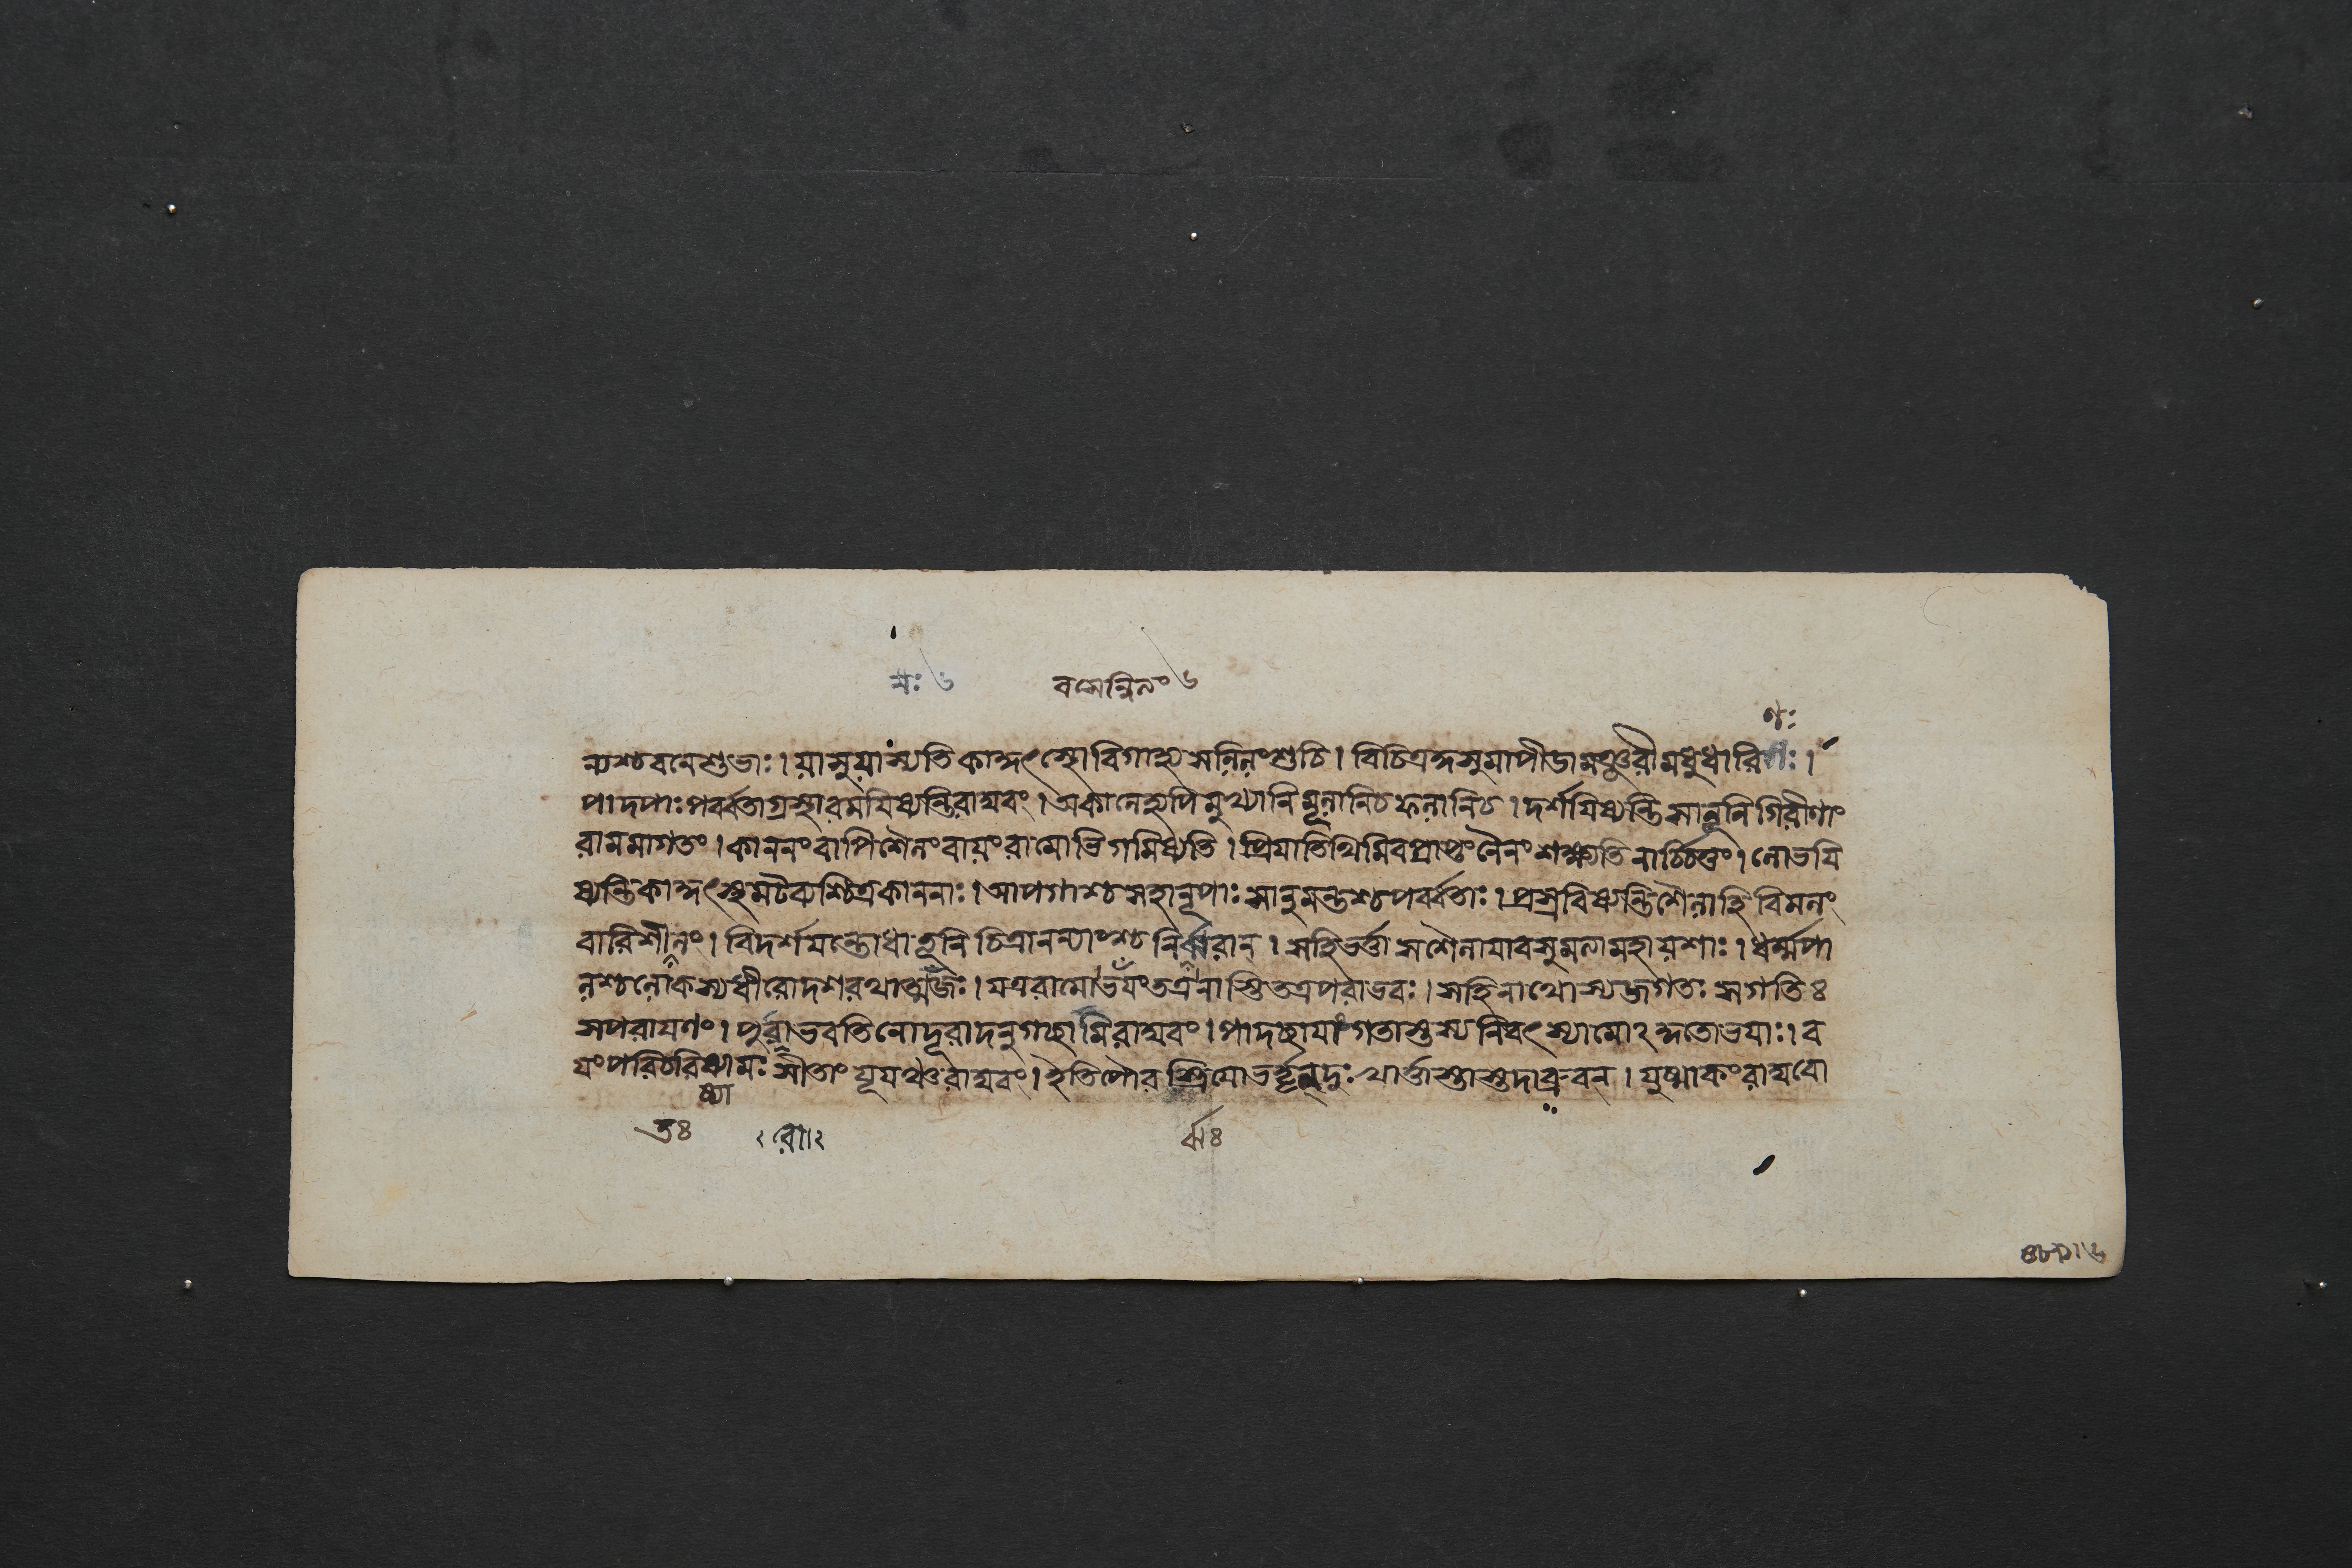 ন্যশ্চবনেশুভাঃ। যাসুযাস্যতিকাকুৎস্থোবিগাহ্যসলিলংশুচি। বিচিত্রকুসুমাপীডামঞ্জরীমধুধারিণঃ।
পাদপাঃপর্ব্বতাগ্রস্থারমযিষ্যন্তিরাঘবং। অকালেহ্যপিমুখ্যানিমূলানিচফলানিচ। দর্শযিষ্যন্তিসানূনিগিরীণাং
রামমাগতং। কাননংবাপিশৈলংবাযংরামোভিগমিষ্যতি। প্রিযাতিথিমিবপ্রাপ্তংনৈনংশক্ষ্যতিনার্চ্চিতুং। শোভযি
ষ্যন্তিকাকুৎস্থমটব্যশ্চিত্রকাননাঃ। আপগাশ্চমহানূপাঃসানুমন্তশ্চপর্ব্বতাঃ। প্রস্রবিষ্যন্তিশৈলাহিবিমলং
বারিশীলং। বিদর্শযন্তোধাতূনিচিত্রানন্যাংশ্চনির্ঝরান্। সহিভর্ত্তাসশৈলাযাবসুমত্যামহাযশাঃ। ধর্ম্মপা
লশ্চলোকস্যধীরোদশরথাত্মজঃ। যত্ররামোভযংতত্রনাস্তিতত্রপরাভবঃ। সহিনাথোস্যজগতঃসগতিঃ
সপরাযণং। পুরাভবতিনোদূরাদনুগচ্ছামিরাঘবং। পাদচ্ছাযাংগতাস্তস্যনিবৎস্যামোঽকুতোভযাঃ। ব
যংপরিচরিষ্যামঃসীতাংযূযঞ্চরাঘবং। ইতিপৌরস্ত্রিযোভর্ত্তৄন্দুঃখার্ত্তাস্তাস্তদাব্রুবন্। যুষ্মাকংরাঘবো